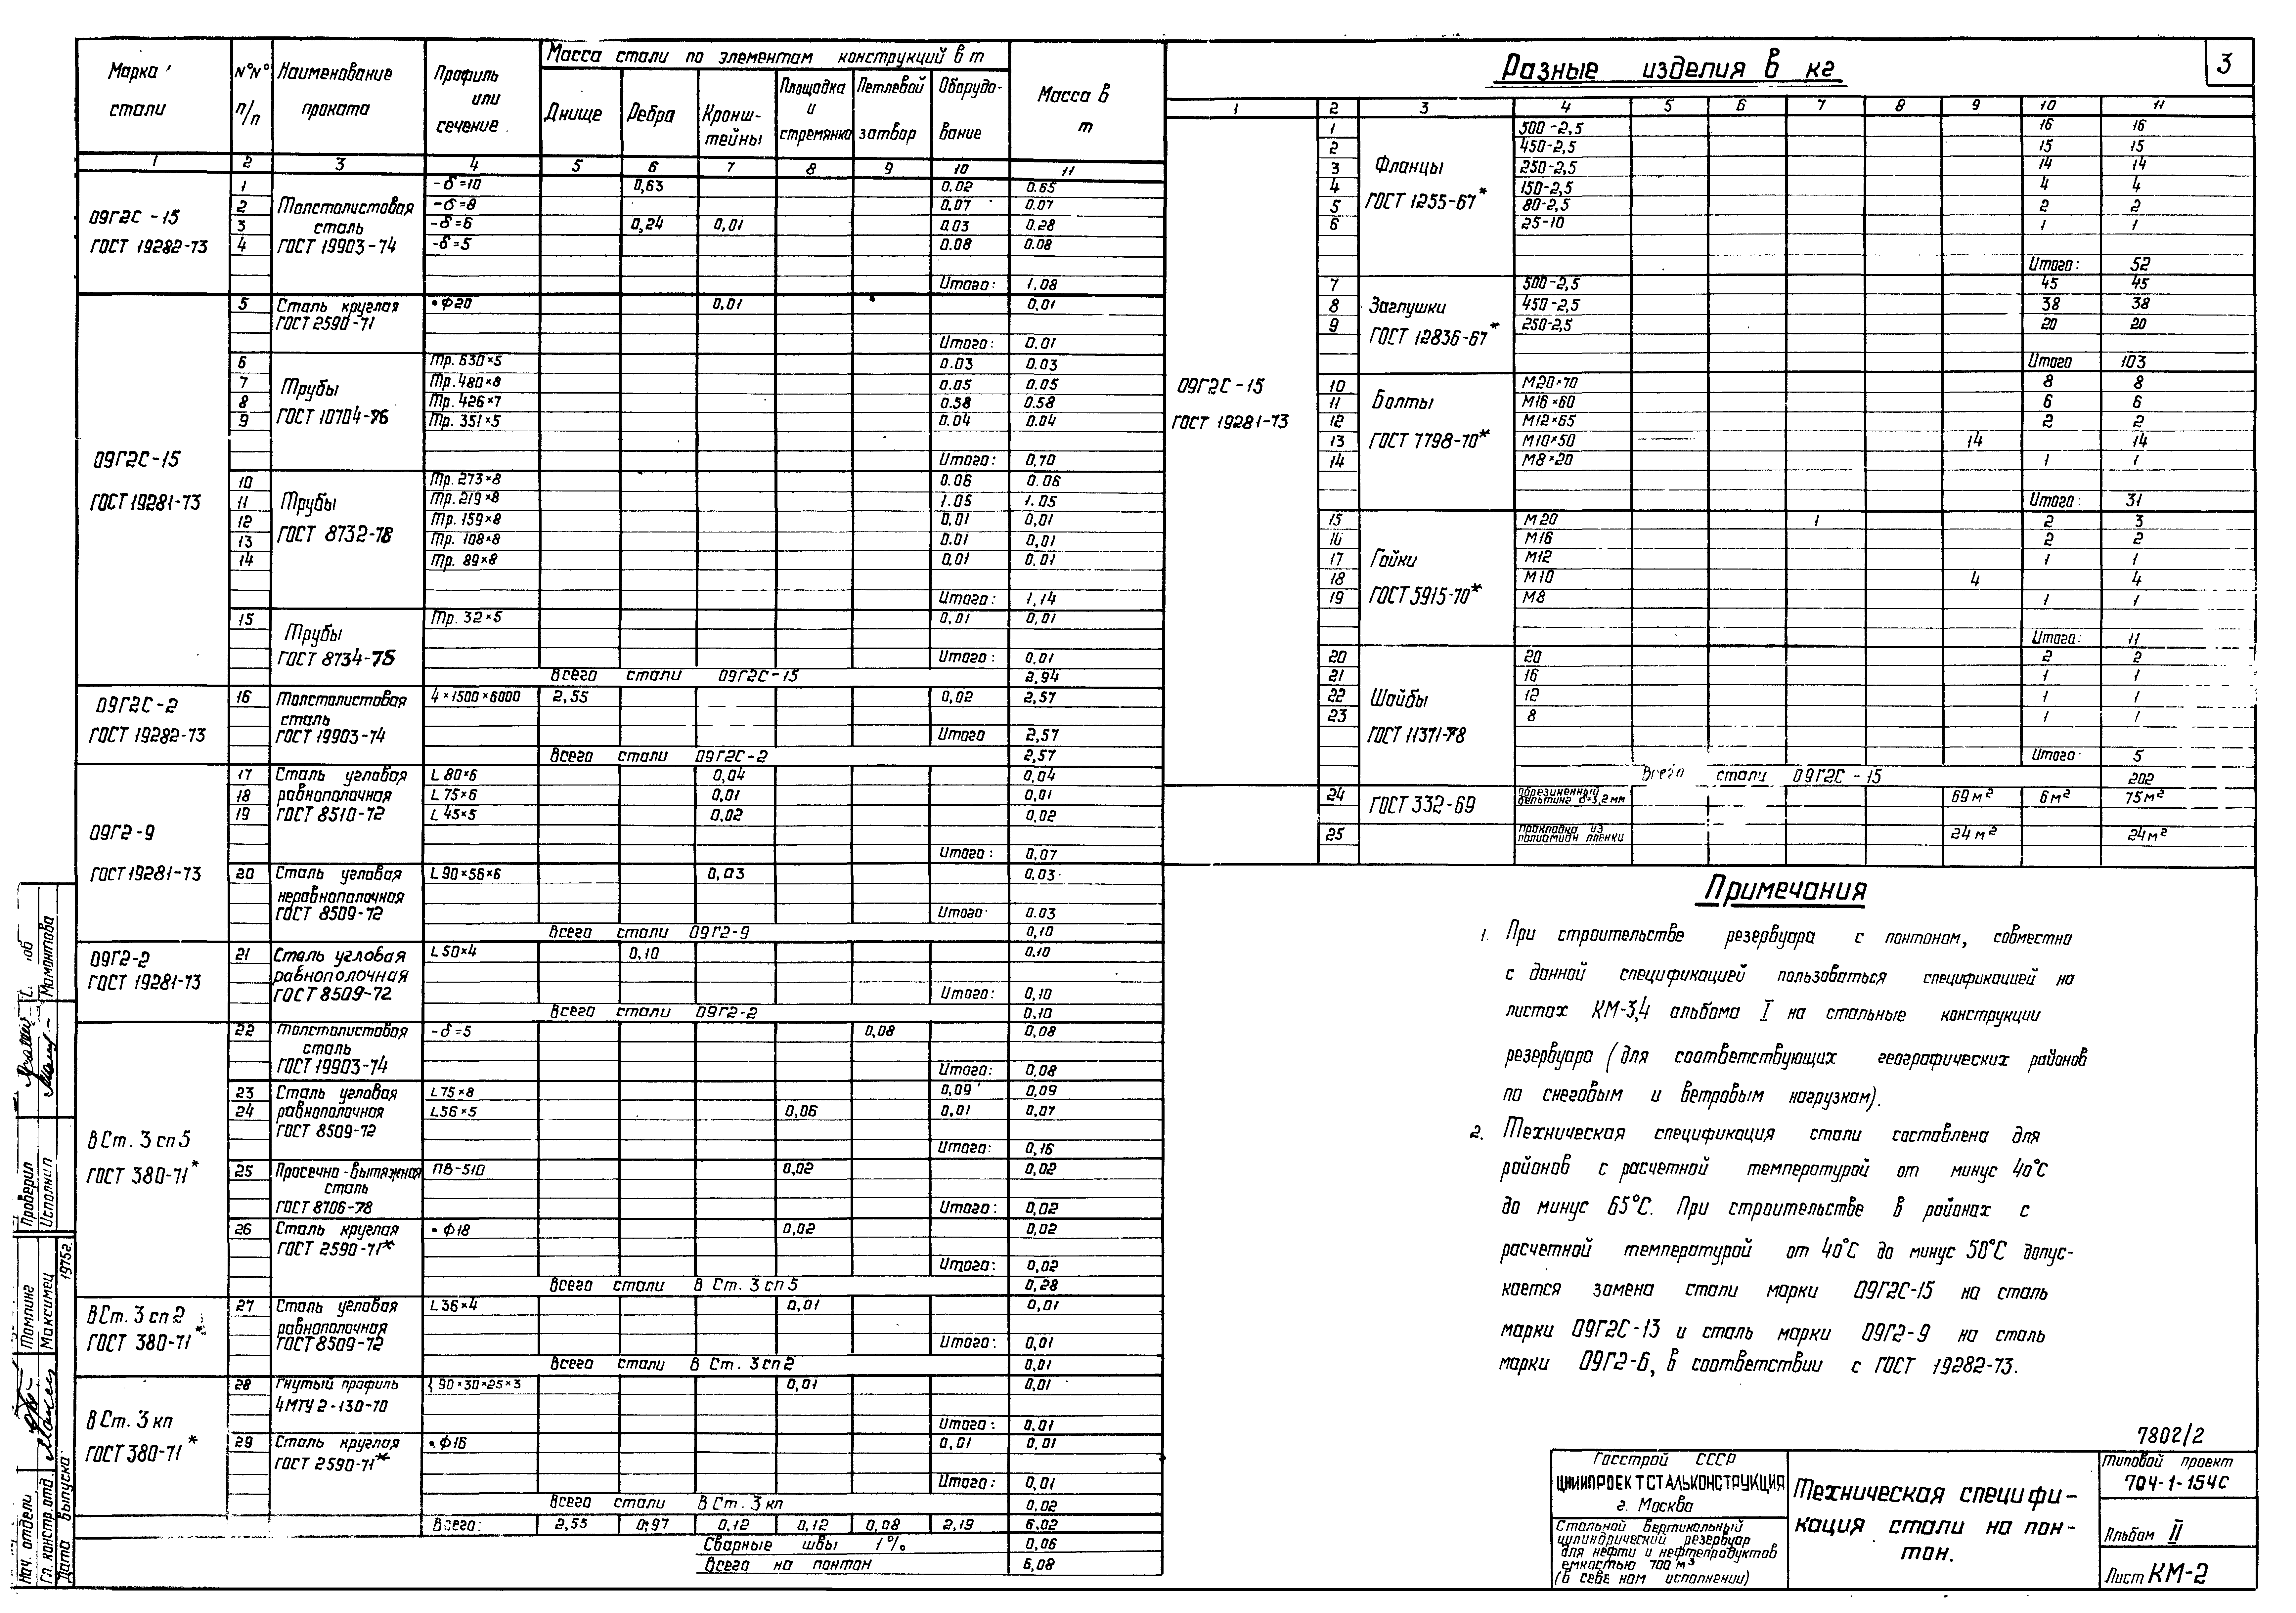 3
Марка стали | №№ п/п | Наименование проката | Профиль или сечение | Масса стали по элементам конструкций в т | Масса в т
Днище | Ребра | Кронштейны | Площадка и стремянка | Петлевой затвор | Оборудование
1 2 3 4 5 6 7 8 9 10 11
09Г2С-15 ГОСТ 19282-73
Толстолистовая сталь ГОСТ 19903-74
1 -δ=10 0,63 0.02 0.65
2 -δ=8 0,07 0.07
3 -δ=6 0,24 0,01 0.03 0.28
4 -δ=5 0.08 0.08
Итого: 1,08
09Г2С-15 ГОСТ 19281-73
5 Сталь круглая ГОСТ 2590-71 •Ф20 0,01 0,01
Итого: 0.01
Трубы ГОСТ 10704-76
6 Тр. 630×5 0.03 0.03
7 Тр. 480×8 0.05 0.05
8 Тр. 426×7 0.58 0.58
9 Тр. 351×5 0.04 0.04
Итого: 0,70
Трубы ГОСТ 8732-78
10 Тр. 273×8 0.06 0.06
11 Тр. 219×8 1.05 1.05
12 Тр. 159×8 0,01 0,01
13 Тр. 108×8 0.01 0,01
14 Тр. 89×8 0,01 0.01
Итого: 1,14
15 Трубы ГОСТ 8734-75 Тр. 32×5 0,01 0,01
Итого: 0,01
Всего стали 09Г2С-15 2,94
09Г2С-2 ГОСТ 19282-73
16 Толстолистовая сталь ГОСТ 19903-74 4×1500×6000 2,55 0,02 2,57
Итого 2,57
Всего стали 09Г2С-2 2,57
09Г2-9 ГОСТ 19281-73
Сталь угловая равнополочная ГОСТ 8510-72
17 L 80×6 0,04 0,04
18 L 75×6 0,01 0,01
19 L 45×5 0,02 0,02
Итого: 0,07
20 Сталь угловая неравнополочная ГОСТ 8509-72 L 90×56×6 0,03 0.03
Итого 0.03
Всего стали 09Г2-9 0,10
09Г2-2 ГОСТ 19281-73
21 Сталь угловая равнополочная ГОСТ 8509-72 L 50×4 0,10 0,10
Итого: 0,10
Всего стали 09Г2-2 0,10
В Ст. 3 сп 5 ГОСТ 380-71*
22 Толстолистовая сталь ГОСТ 19903-74 -δ=5 0,08 0,08
Итого: 0,08
Сталь угловая равнополочная ГОСТ 8509-72
23 L 75×8 0,09 0,09
24 L 56×5 0,06 0,01 0,07
Итого: 0,16
25 Просечно-вытяжная сталь ГОСТ 8706-78 ПВ-510 0,02 0,02
Итого: 0,02
26 Сталь круглая ГОСТ 2590-71* • Ф18 0,02 0,02
Итого: 0,02
Всего стали В Ст. 3 сп 5 0,28
В Ст. 3 сп 2 ГОСТ 380-71*
27 Сталь угловая равнополочная ГОСТ 8509-72 L 36×4 0,01 0,01
Итого: 0,01
Всего стали В Ст. 3 сп 2 0,01
В Ст. 3 кп ГОСТ 380-71*
28 Гнутый профиль 4МТУ 2-130-70 90×30×25×3 0,01 0,01
Итого: 0,01
29 Сталь круглая ГОСТ 2590-71* • Ф16 0,01 0,01
Итого: 0,01
Всего стали В Ст. 3 кп 0,02
Всего: 2,55 0,97 0,12 0,12 0,08 2,19 6.02
Сварные швы 1% 0,06
Всего на понтон 6,08
Разные изделия в кг
1 2 3 4 5 6 7 8 9 10 11
09Г2С-15 ГОСТ 19281-73
Фланцы ГОСТ 1255-67*
1 500-2,5 16 16
2 450-2,5 15 15
3 250-2,5 14 14
4 150-2,5 4 4
5 80-2,5 2 2
6 25-10 1 1
Итого: 52
Заглушки ГОСТ 12836-67*
7 500-2,5 45 45
8 450-2,5 38 38
9 250-2,5 20 20
Итого 103
Болты ГОСТ 7798-70*
10 М20×70 8 8
11 М16×60 6 6
12 М12×65 2 2
13 М10×50 14 14
14 М8×20 1 1
Итого: 31
Гайки ГОСТ 5915-70*
15 М20 1 2 3
16 М16 2 2
17 М12 1 1
18 М10 4 4
19 М8 1 1
Итого: 11
Шайбы ГОСТ 11371-78
20 20 2 2
21 16 1 1
22 12 1 1
23 8 1 1
Итого: 5
Всего стали 09Г2С-15 202
24 ГОСТ 332-69 Прорезиненный бельтинг δ=3,2мм 69м² 6м² 75м²
25 Прокладка из полиамидн пленки 24м² 24м²
Примечания
1. При строительстве резервуара с понтоном, совместно
с данной спецификацией пользоваться спецификацией на
листах КМ-3,4 альбома I на стальные конструкции
резервуара (для соответствующих географических районов
по снеговым и ветровым нагрузкам).
2. Техническая спецификация стали составлена для
районов с расчетной температурой от минус 40°С
до минус 65°С. При строительстве в районах с
расчетной температурой от 40°С до минус 50°С допус-
кается замена стали марки 09Г2С-15 на сталь
марки 09Г2С-13 и сталь марки 09Г2-9 на сталь
марки 09Г2-6, в соответствии с ГОСТ 19282-73.
7802/2
Госстрой СССР
ЦНИИПРОЕКТСТАЛЬКОНСТРУКЦИЯ
г. Москва
Стальной вертикальный
цилиндрический резервуар
для нефти и нефтепродуктов
емкостью 700 м³
(в севе ном исполнении)
Техническая специфи-
кация стали на пон-
тон.
Типовой проект
704-1-154С
Альбом II
Лист КМ-2
Нач. отдела Томпинг
Гл. констр. отд. Максимец
Дата выпуска 1975г.
Проверил
Исполнил Мамонтова